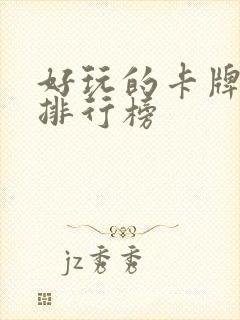 好玩的卡牌
排行榜
jz秀秀